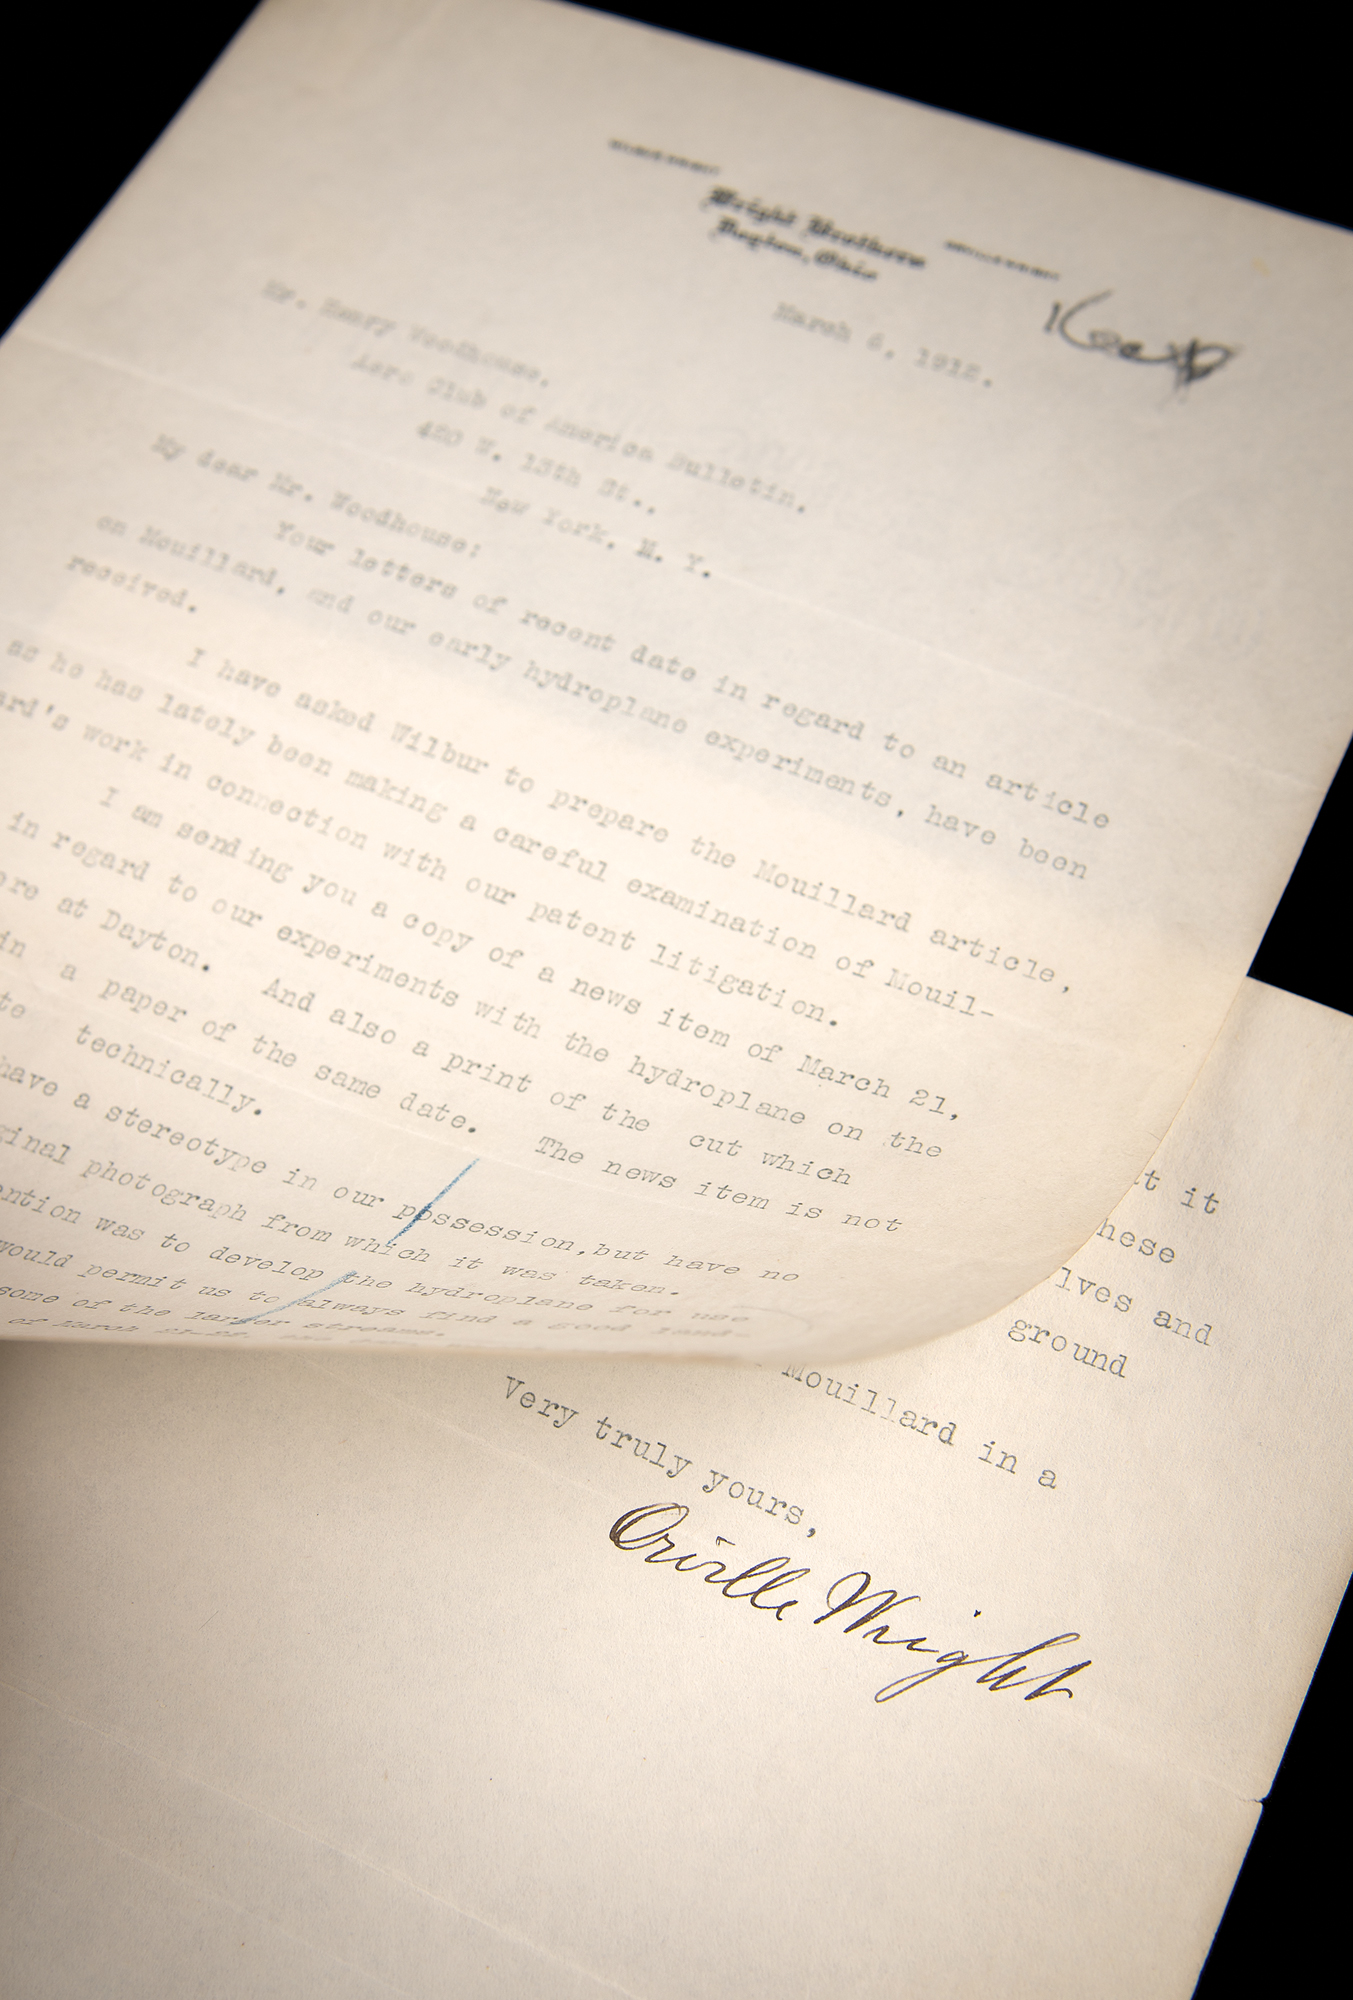 Wright Brothers
Dayton, Ohio
March 6, 1912.
Mr. Henry Woodhouse,
Aero Club of America Bulletin,
420 W. 13th St.,
New York, N. Y.
My dear Mr. Woodhouse:
Your letters of recent date in regard to an article
on Mouillard, and our early hydroplane experiments, have been
received.
I have asked Wilbur to prepare the Mouillard article,
as he has lately been making a careful examination of Mouil-
ard's work in connection with our patent litigation.
I am sending you a copy of a news item of March 21,
in regard to our experiments with the hydroplane on the
ere at Dayton. And also a print of the cut which
in a paper of the same date. The news item is not
te technically.
have a stereotype in our possession, but have no
ginal photograph from which it was taken.
ention was to develop the hydroplane for use
would permit us to always find a good land-
some of the larger streams.
of March
t it
hese
lves and
ground
Mouillard in a
Very truly yours,
Orville Wright